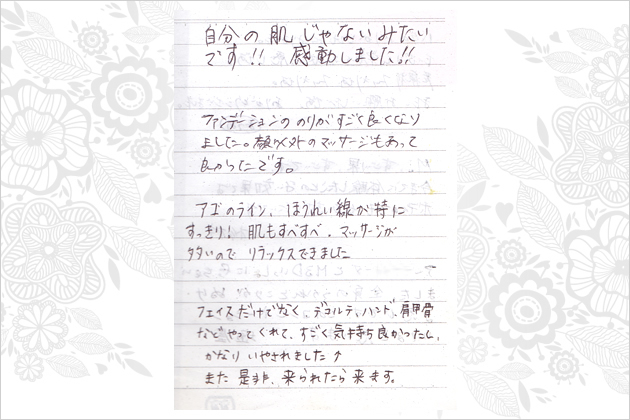 自分の肌じゃないみたい
です!! 感動しました!!
ファンデーションののりがすごく良くなり
ました。顔以外のマッサージもあって
良かったです。
アゴのライン、ほうれい線が特に
すっきり! 肌もすべすべ。マッサージが
多いので リラックスできました
フェイスだけでなく、デコルテ、ハンド、肩甲骨
などやってくれて、すごく気持ち良かったし、
かなり いやされました↑
また 是非、来られたら来ます。